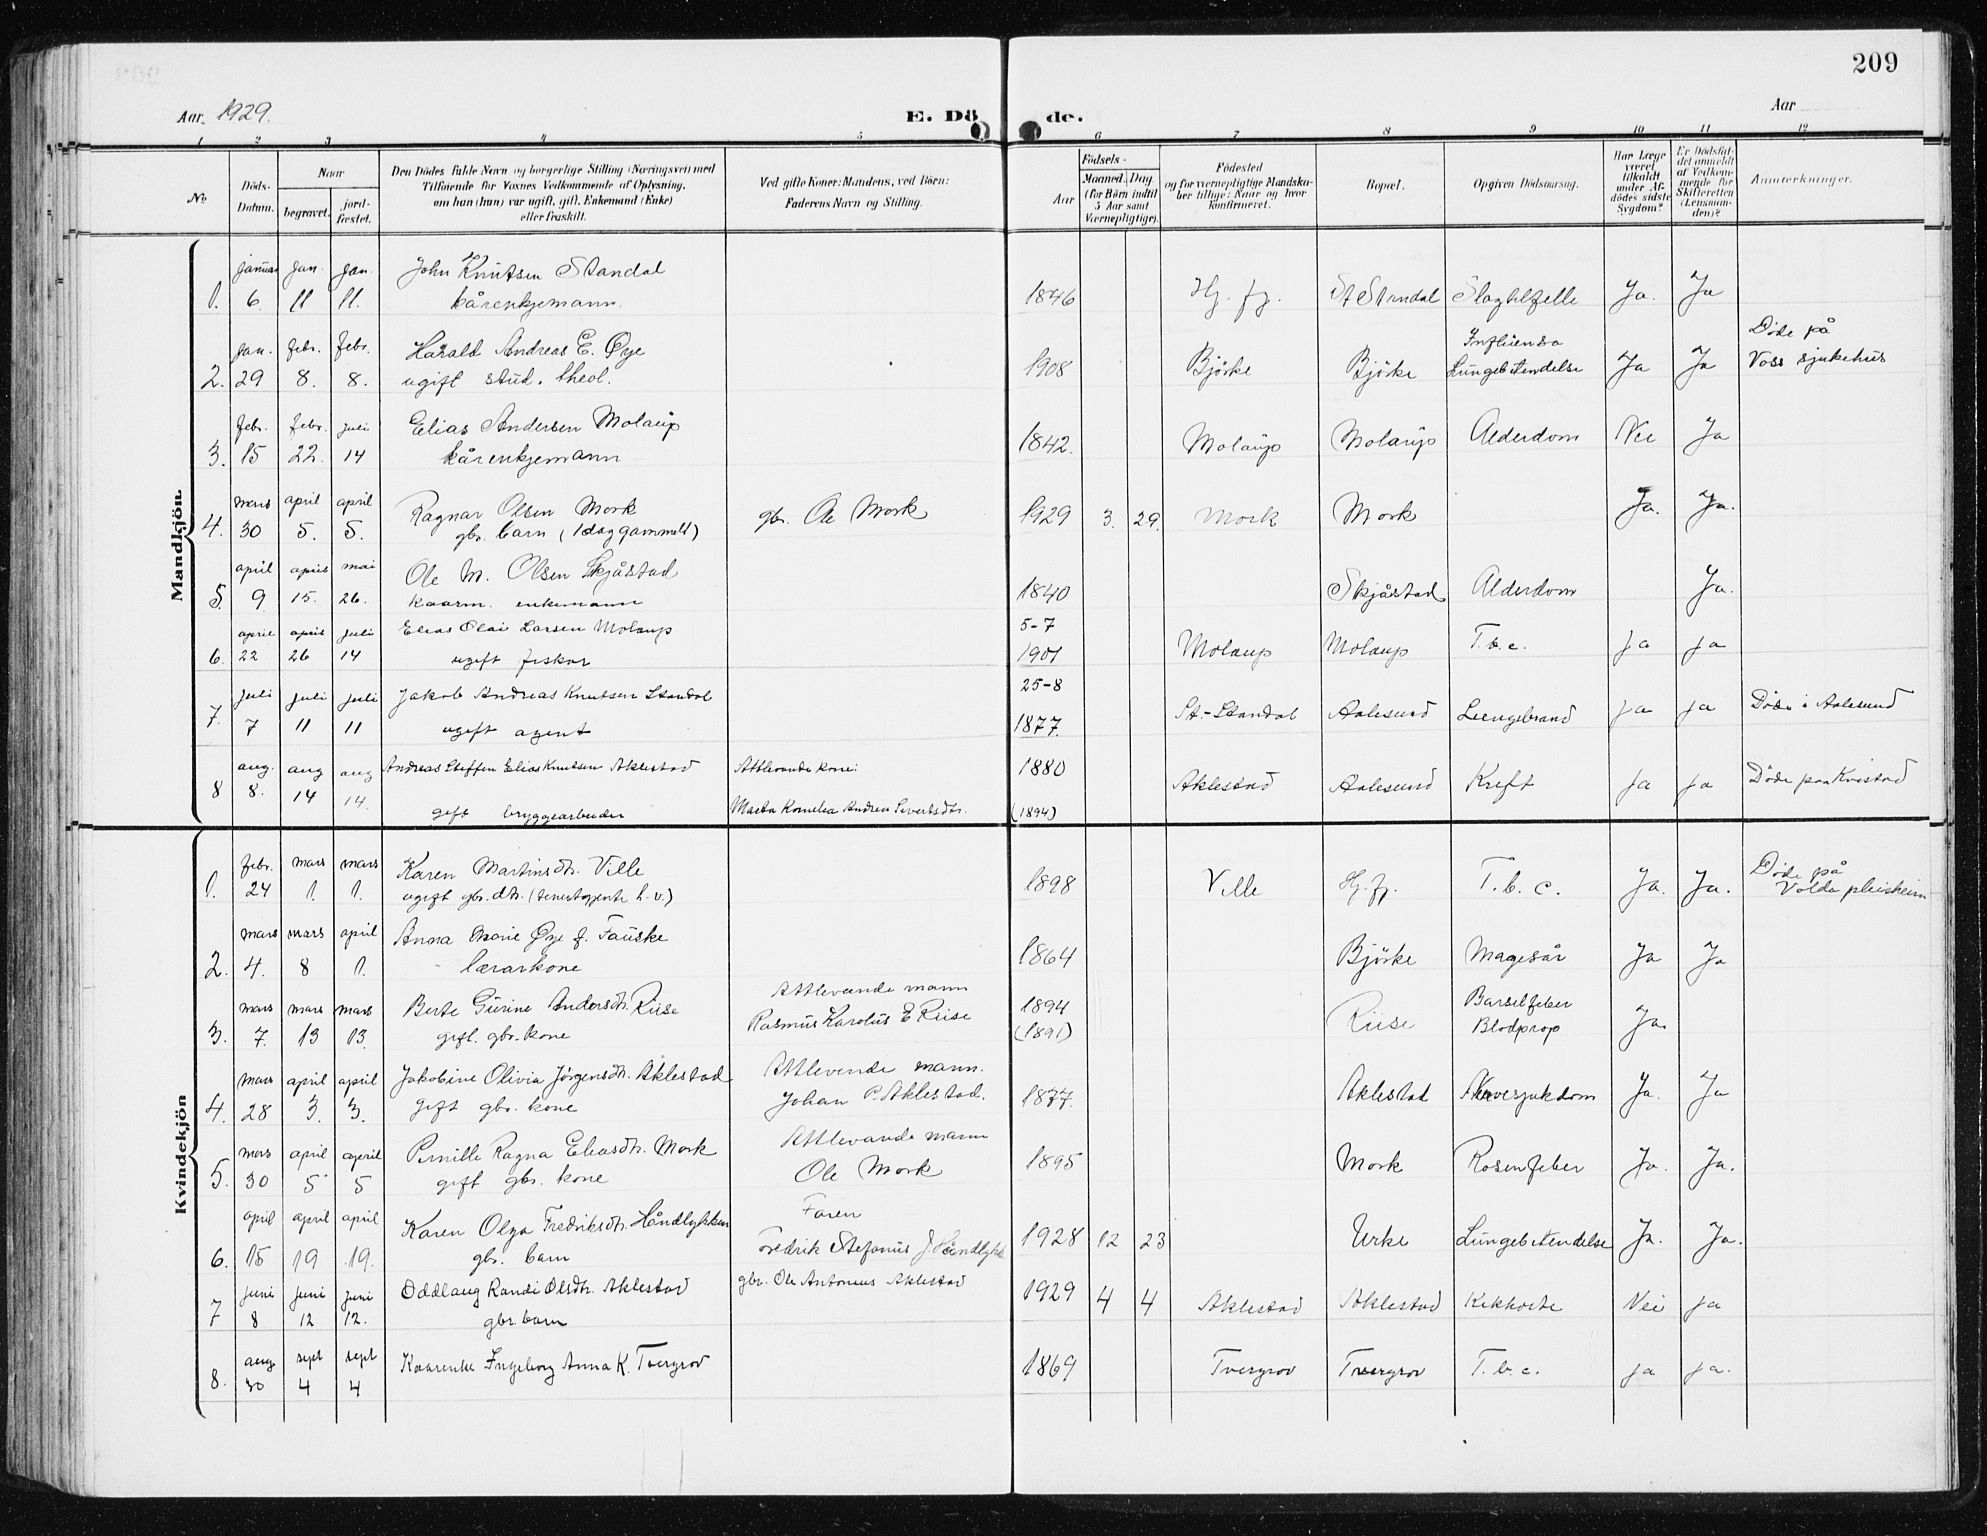 209
Aar 1929.
E. Döde.
Aar
1 2 3 4 5 6 7 8 9 10 11 12
No.
Döds-Datum.
Naar
begravet.
jord-fæstet.
Den Dödes fulde Navn og borgerlige Stilling (Næringsvei) med
Tilföiende for Voxnes Vedkommende af Oplysning,
om han (hun) var ugift, gift, Enkemand (Enke)
eller fraskilt.
Ved gifte Koner: Mandens, ved Börn:
Faderens Navn og Stilling.
Födsels-
Aar
Maaned. Dag
(for Börn indtil
5 Aar samt
Værnepligtige).
Födested
og for værnepligtige Mandska-
ber tillige: Naar og hvor
konfirmeret.
Bopæl.
Opgiven Dödsaarsag.
Har Læge
været
tilkaldt
under Af-
dödes sidste
Sygdom?
Er Dödsfal-
det anmeldt
af Vedkom-
mende for
Skifteretten
(Lensman-
den)?
Anmærkninger.
Mandkjön.
januar jan. jan. John Knutsen Standal
1. 6. 11 11. kårenkjemann. 1846 Hj. fj. St. Standal Slagtilfelle Ja. Ja
jan. febr. febr. Harald Andreas E. Øye Influensa Døde på
2. 29 8. 8. ugift stud. theol. 1908 Bjørke Bjørke Lungebetendelse Ja Ja Voss sjukehus
febr. febr. juli Elias Andersen Molaup
3. 15 22. 14 kårenkjemann 1842. Molaup Molaup Alderdom Nei Ja
mars april april Ragnar Olsen Mork gbr. Ole Mork
4. 30 5. 5. gbr. barn (1 dag gammelt) 1929 3. 29. Mork Mork Ja. Ja.
april april mai Ole M. Olsen Skjåstad
5. 9 15. 26. kaarm. enkemann 1840 Skjåstad Alderdom Ja.
april april juli Elias Olai Larsen Molaup 5-7
6. 22 26 14 ugift fiskar 1901 Molaup Molaup T.b.c. ja ja
juli juli juli Jakob Andreas Knutsen Standal 25-8
7. 7 11 11 ugift agent 1877. St.-Standal Aalesund Lungebrand ja ja Døde i Aalesund
aug. aug aug Andreas Steffen Elias Knutsen Aklestad Attlevande kone: 1880
8 8. 14 14. gift bryggearbeider Marta Kornelia Andrea Sivertsdtr. (1894) Aklestad Aalesund Kreft ja ja Døde paa Kvistad
Kvindekjön
febr. mars mars Karen Martinsdtr. Ville Døde på
1. 24 1. 1. ugift gbr. dtr. (tenestgjente h. v.) 1898 Ville Hj. fj. T.b.c. Ja. Ja. Volda pleiheim
mars mars april Anna Marie Øye f. Fauske
2. 4. 8 1. lærarkone 1864 Bjørke Magesår Ja Ja
mars mars mars Berte Gurine Andersdtr. Riise Attlevande mann 1894 Barselfeber
3. 7. 13 13. gift. gbr. kone Rasmus Karolus E Riise (1891) Riise Blodprop Ja.
mars april april Jakobine Olivia Jørgensdtr. Aklestad Attlevende mann.
4. 28 3. 3. gift gbr. kone Johan P. Aklestad. 1877. Aklestad Nervesjukdom Ja. Ja
mars april april Pernille Ragna Eliasdtr. Mork Attlevande mann
5. 30 5 5 gift gbr. kone Ole Mork 1895 Mork Rosenfeber Ja. Ja.
april april april Karen Olga Fredriksdtr. Håndlykken Faren
6. 15 19 19. gbr. barn Fredrik Stefanus J. Håndlykk 1928 12 23 Urke Lungebetendelse Ja. Ja.
juni juni juni Oddlaug Randi Olsdtr. Aklestad gbr. Ole Antonius Aklestad
7 8 12 12. gbr. barn 1929 4 4 Aklestad Aklestad Kikhoste Nei ja
aug sept sept Kaarenke Ingeborg Anna K. Tvergrov
8. 30 4 4 1869 Tvergrov Tvergrov T.b.c. ja ja.